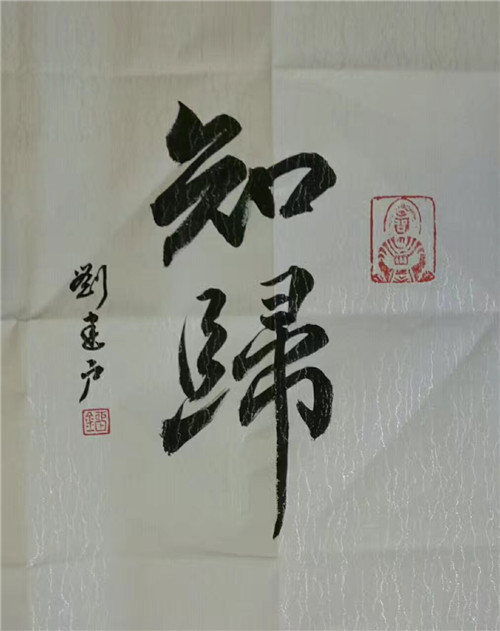 知歸
劉建戶